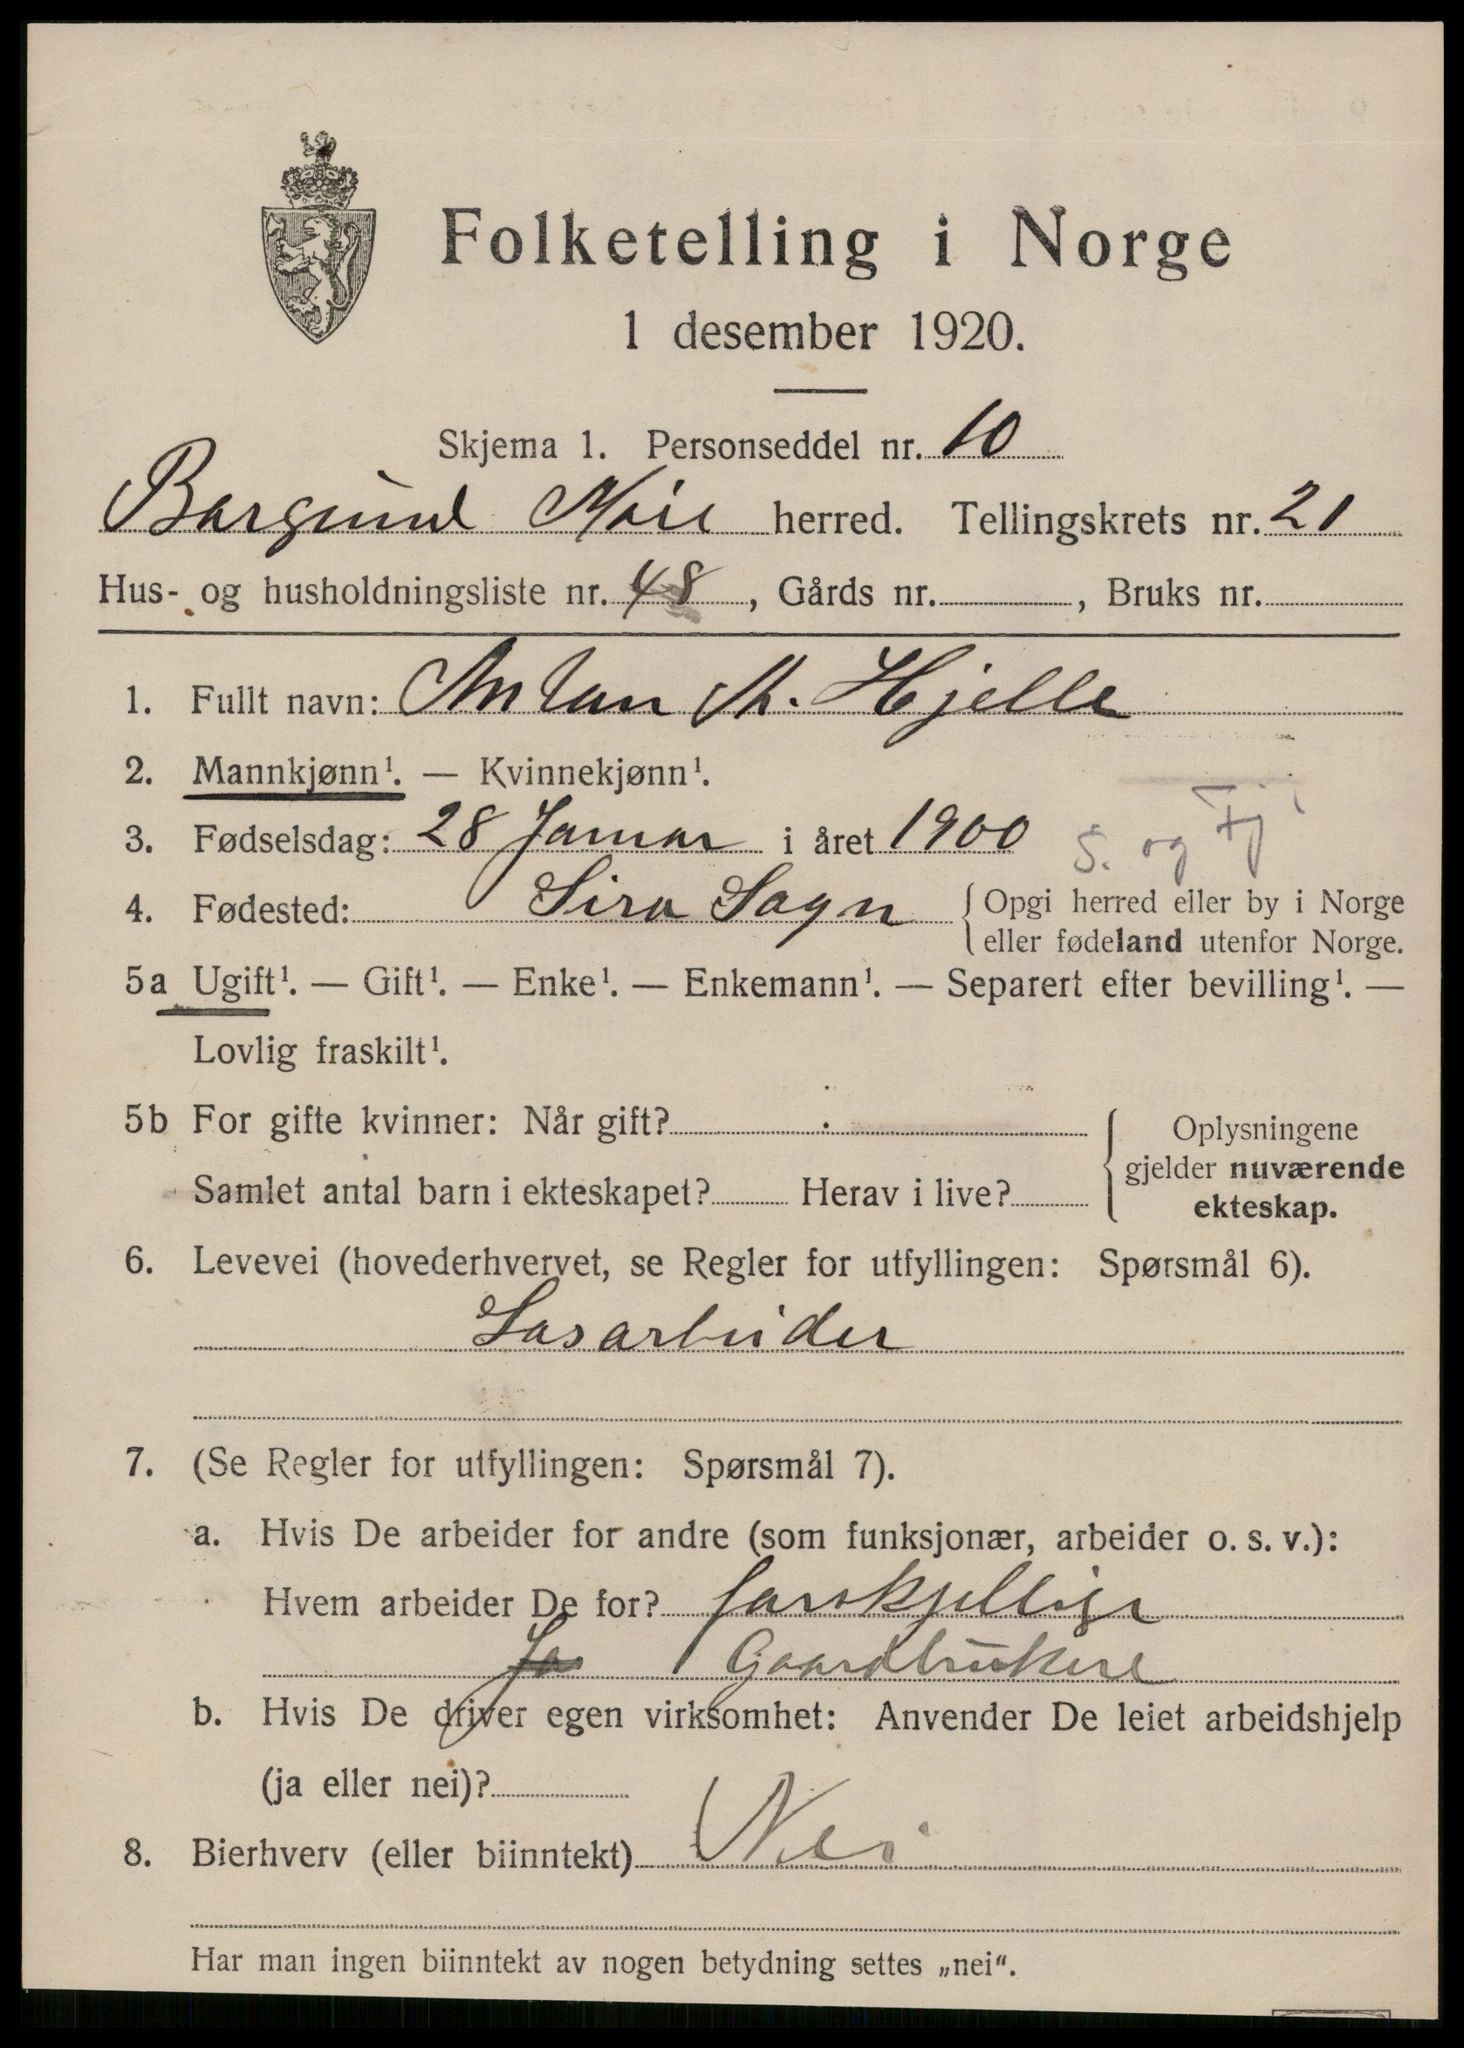 Folketelling i Norge
1 desember 1920.
Skjema 1. Personseddel nr. 10
Borgund Møre herred. Tellingskrets nr. 21
Hus- og husholdningsliste nr. 48, Gårds nr. , Bruks nr.
1. Fullt navn: Anton M. Hjelle
2. Mannkjønn¹. — Kvinnekjønn¹.
S. og Fj.
3. Fødselsdag: 28 Januar i året 1900
4. Fødested: Sira Sogn {Opgi herred eller by i Norge
eller fødeland utenfor Norge.
5a Ugift¹. — Gift¹. — Enke¹. — Enkemann¹. — Separert efter bevilling¹. —
Lovlig fraskilt¹.
5b For gifte kvinner: Når gift?
Samlet antal barn i ekteskapet? Herav i live?
{Oplysningene
gjelder nuværende
ekteskap.
6. Levevei (hovederhvervet, se Regler for utfyllingen: Spørsmål 6).
Løsarbeider
7. (Se Regler for utfyllingen: Spørsmål 7).
a. Hvis De arbeider for andre (som funksjonær, arbeider o. s. v.):
Hvem arbeider De for? forskjellige
Ja Gaardbrukere
b. Hvis De driver egen virksomhet: Anvender De leiet arbeidshjelp
(ja eller nei)?
8. Bierhverv (eller biinntekt) Nei
Har man ingen biinntekt av nogen betydning settes „nei“.